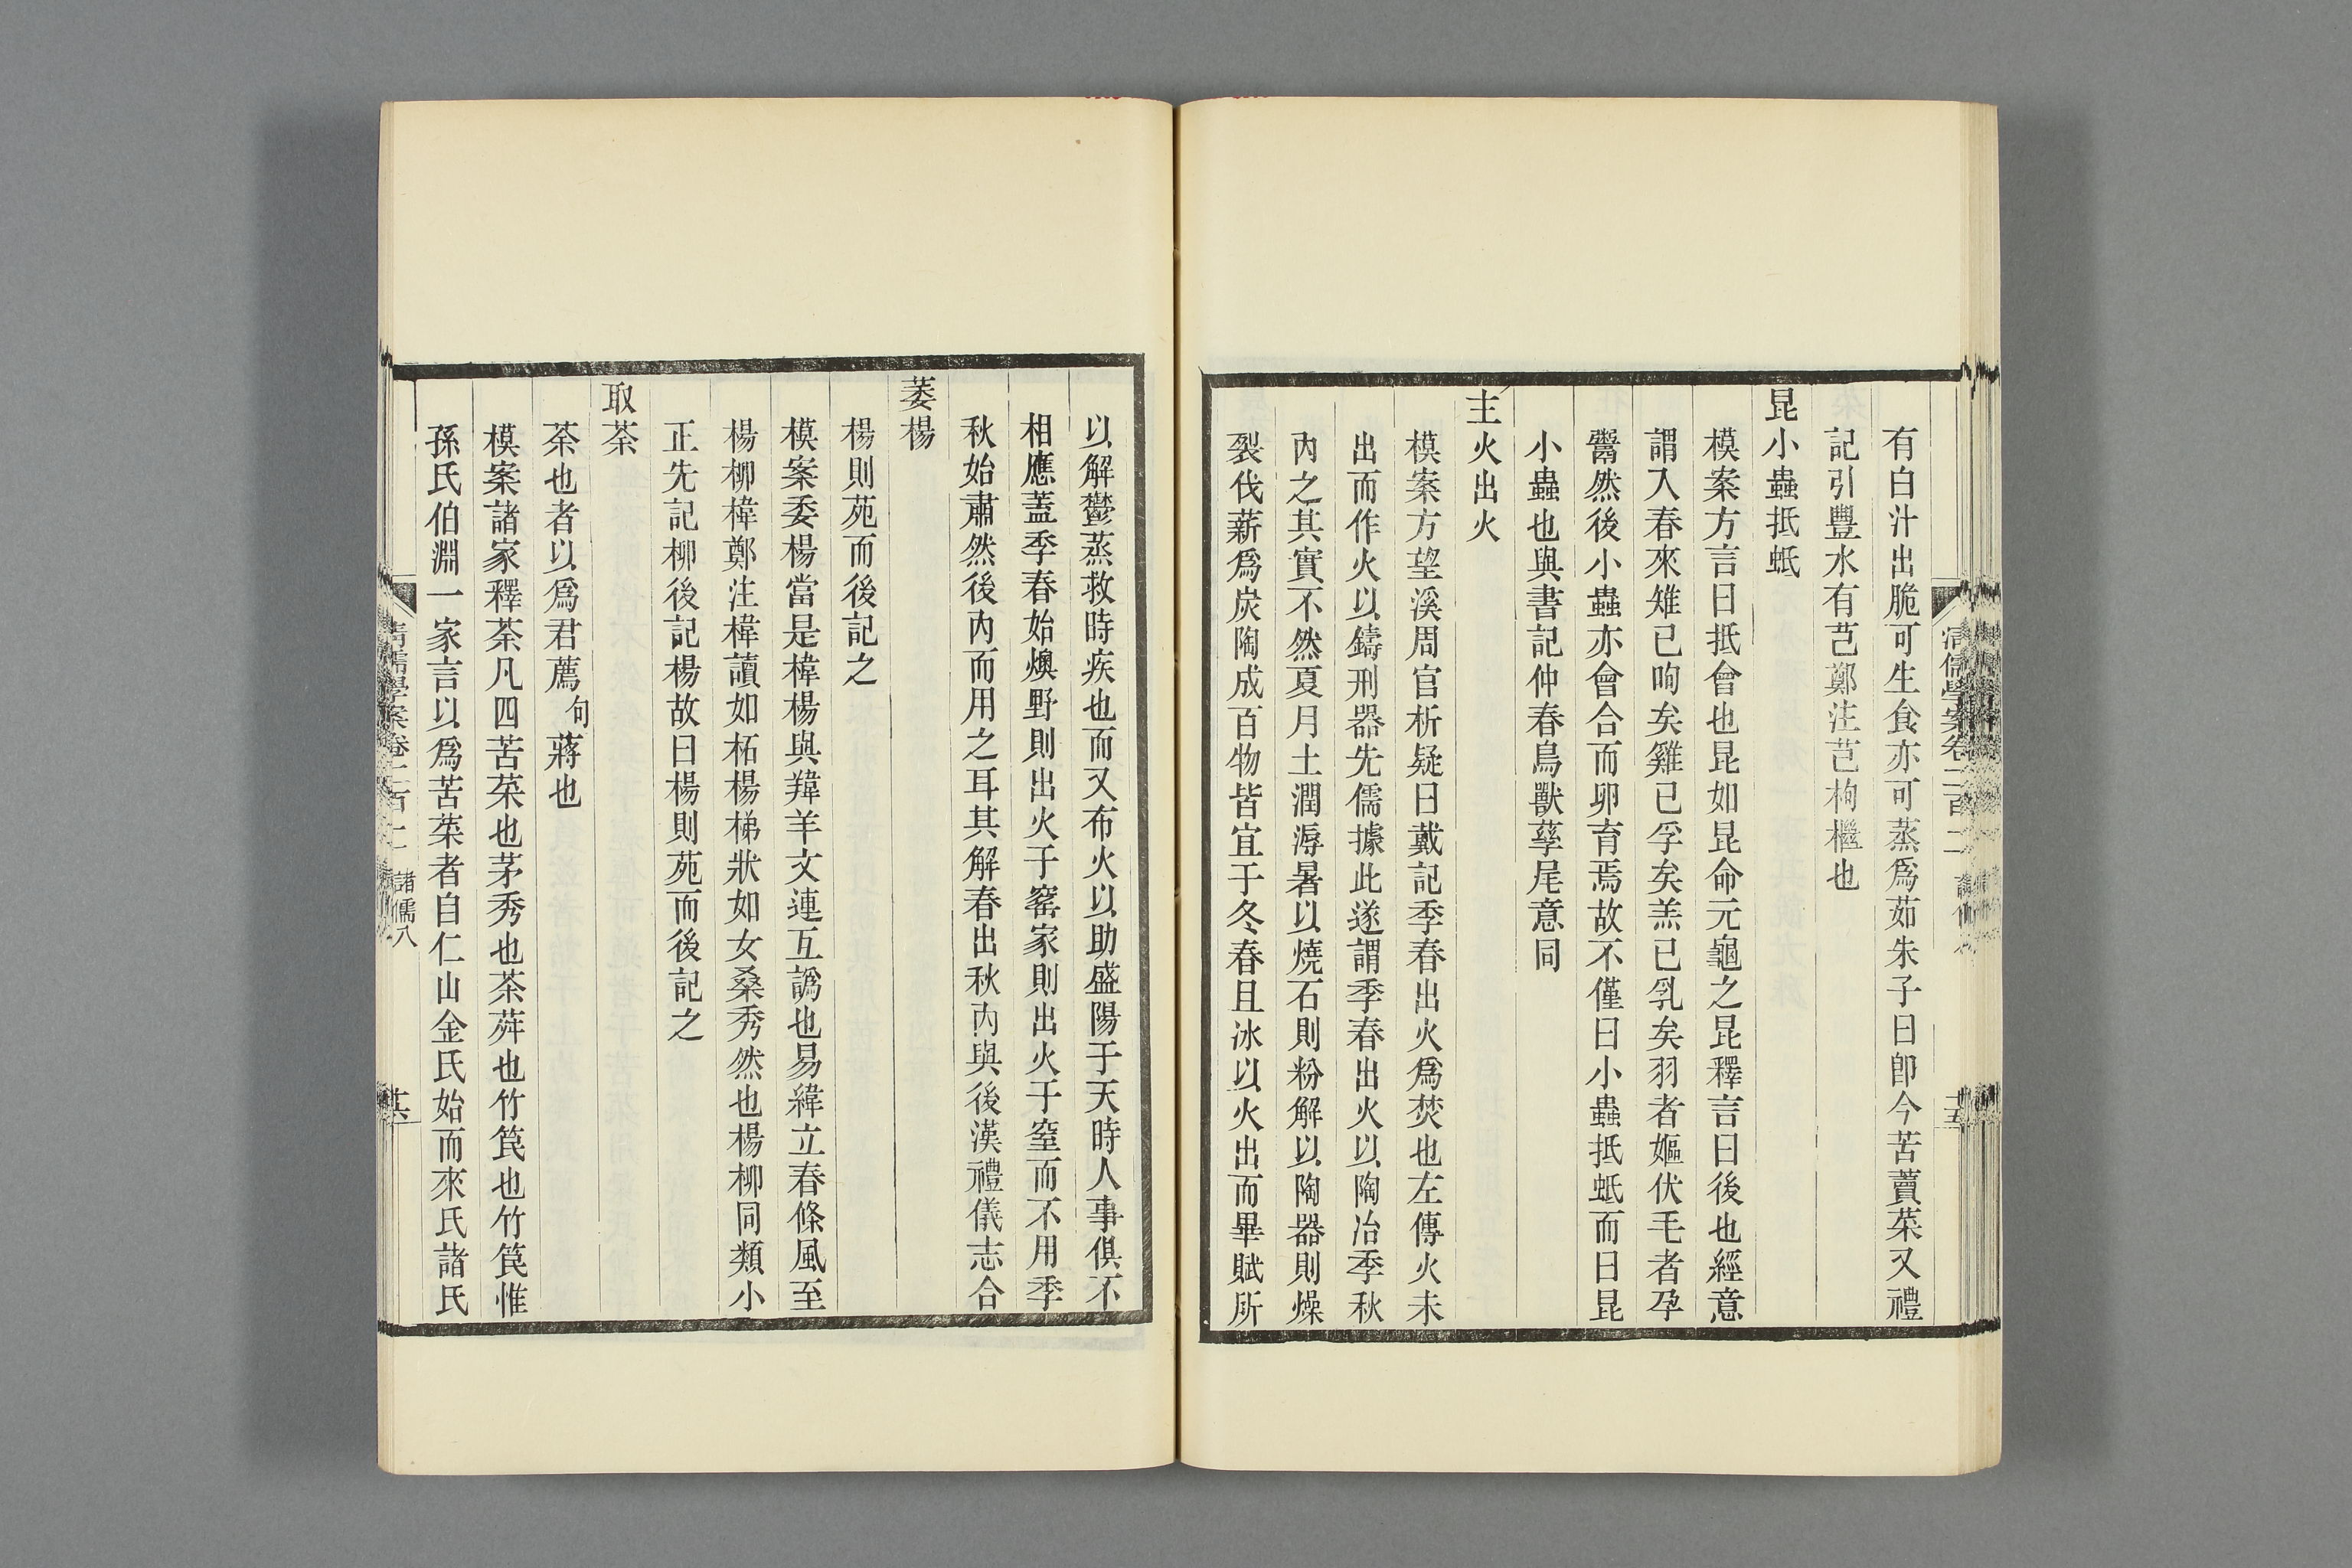 有白汁出脆可生食亦可蒸爲茹朱子曰卽今苦蕒菜又禮
記引豐水有芑鄭注芑枸檵也
昆小蟲抵蚳
模案方言曰抵會也昆如昆命元龜之昆釋言曰後也經意
謂入春來雉已呴矣雞已孚矣羔已乳矣羽者嫗伏毛者孕
鬻然後小蟲亦會合而卵育焉故不僅曰小蟲抵蚳而曰昆
小蟲也與書記仲春鳥獸孳尾意同
主火出火
模案方望溪周官析疑曰戴記季春出火爲焚也左傳火未
出而作火以鑄刑器先儒據此遂謂季春出火以陶冶季秋
內之其實不然夏月土潤溽暑以燒石則粉解以陶器則燥
裂伐薪爲炭陶成百物皆宜于冬春且冰以火出而畢賦所
以解鬱蒸救時疾也而又布火以助盛陽于天時人事俱不
相應蓋季春始燠野則出火于窰家則出火于窒而不用季
秋始肅然後內而用之耳其解春出秋內與後漢禮儀志合
萎楊
楊則苑而後記之
模案委楊當是椲楊與羵羊文連互譌也易緯立春條風至
楊柳椲鄭注椲讀如柘楊梯狀如女桑秀然也楊柳同類小
正先記柳後記楊故曰楊則苑而後記之
取荼
荼也者以爲君薦句蔣也
模案諸家釋荼凡四苦菜也茅秀也荼蕣也竹筤也竹筤惟
孫氏伯淵一家言以爲苦菜者自仁山金氏始而來氏諸氏
清儒學案卷二百二
諸儒八
十六
清儒學案卷二百二
十五